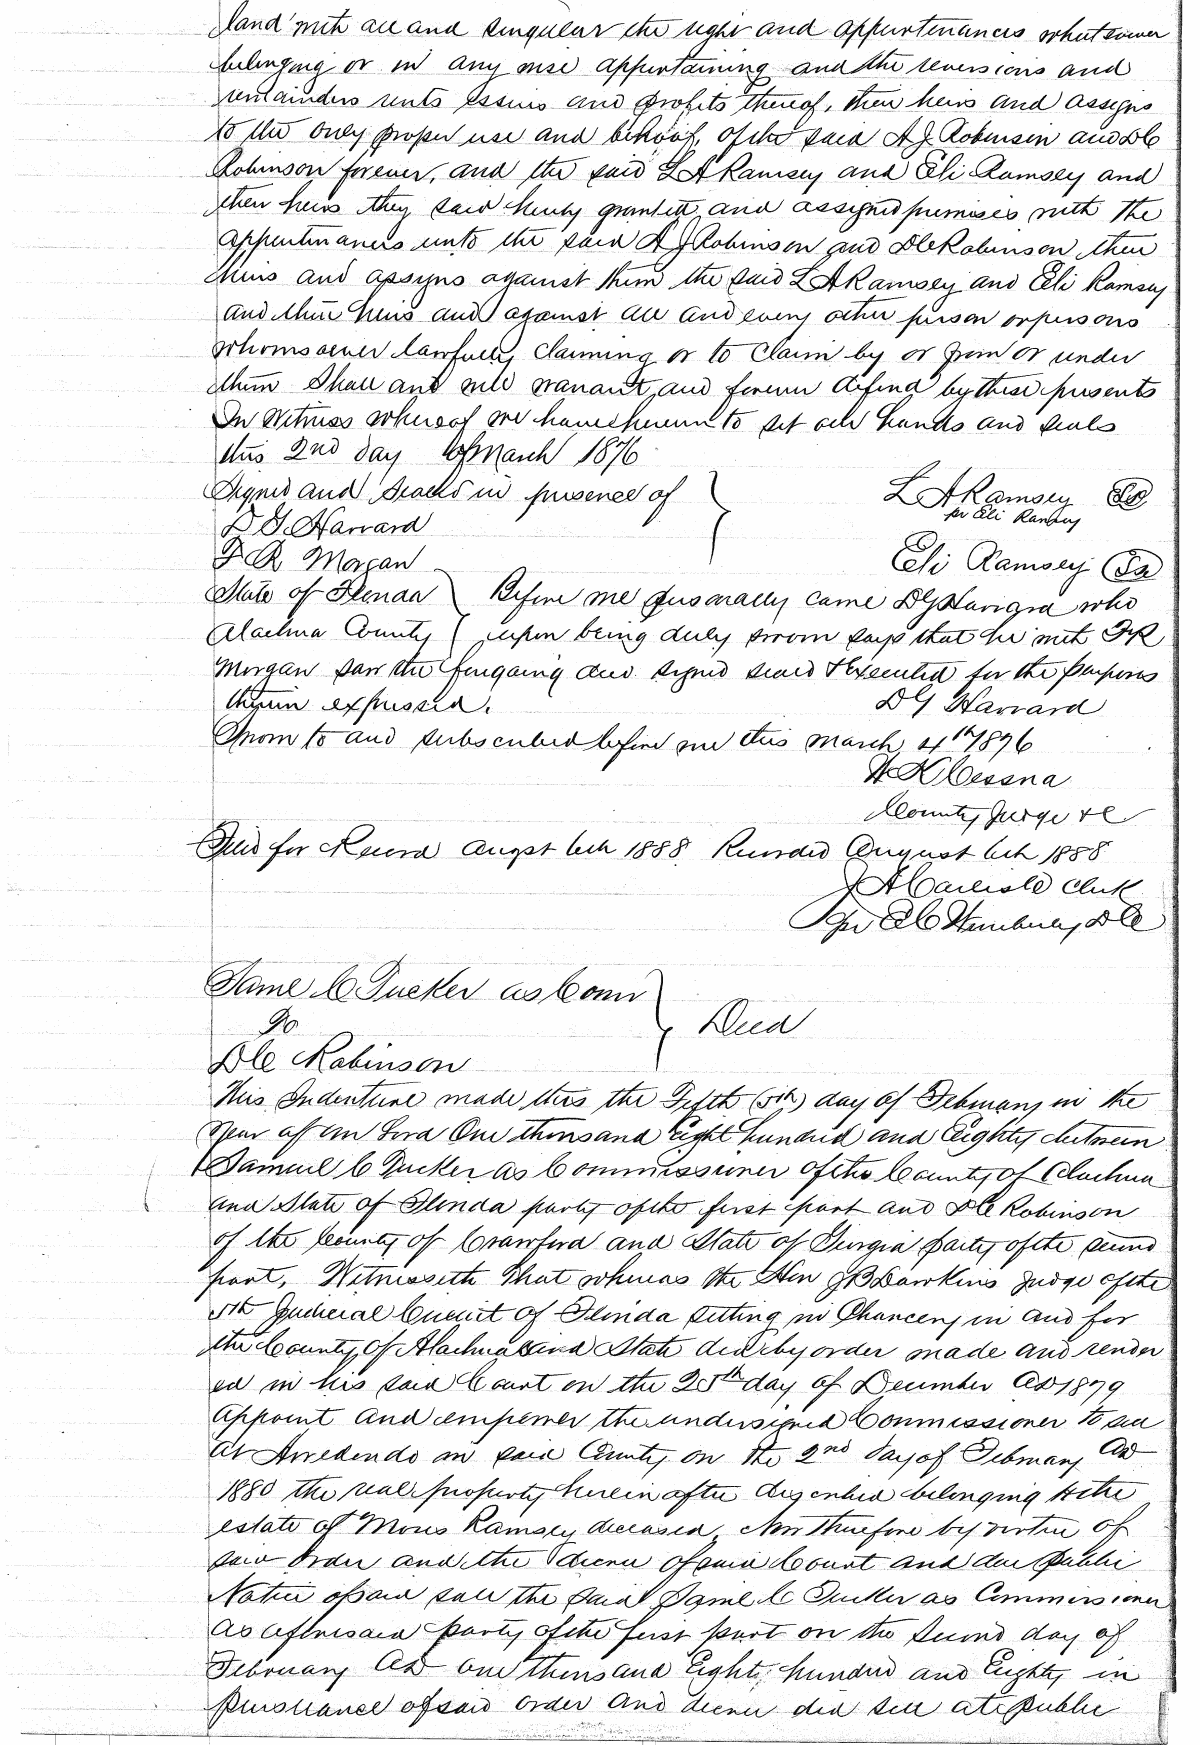 land with all and singular the right and appurtenances whatsoever
belonging or in any wise appertaining and the reversions and
remainders rents issues and profits thereof, their heirs and assigns
to the only proper use and behoof, of the said A J Robinson and D C
Robinson forever, and the said L A Ramsey and Eli Ramsey and
their heirs they said hereby granted and assigned premises with the
appurtenances unto the said A J Robinson and D C Robinson their
heirs and assigns against them the said L A Ramsey and Eli Ramsey
and their heirs and against all and every other person or persons
whomsoever lawfully claiming or to claim by or from or under
them Shall and will warrant and forever defend by these presents
In Witness whereof we have hereunto set our hands and seals
this 2nd day of March 1876
Signed and Sealed in presence of L A Ramsey
pr Eli Ramsey
D G Harvard
F R Morgan Eli Ramsey
State of Florida Before me personally came D G Harvard who
Alachua County upon being duly sworn says that he with F R
Morgan saw the foregoing deed signed sealed & Executed for the purposes
therein expressed. D G Harvard
Sworn to and subscribed before me this March 4th 1876
W K Cessna
County Judge & C
Filed for Record Augst 6th 1888 Recorded August 6th 1888
J A Carlisle Clerk
Per D C
Jame C Tucker as Comr
To Deed
D C Robinson
This Indenture made this the Fifth (5th) day of February in the
Year of our Lord One thousand Eight hundred and Eighty between
Samuel C Tucker as Commissioner of the County of Alachua
and State of Florida party of the first part and D C Robinson
of the County of Crawford and State of Georgia party of the second
part, Witnesseth That whereas the Hon J B Dawkins Judge of the
5th Judicial Circuit of Florida sitting in Chancery in and for
the County of Alachua and State did by order made and render
ed in his said Court on the 25th day of December AD 1879
appoint and empower the undersigned Commissioner to sell
at Arredondo in said County on the 2nd day of February AD
1880 the real property herein after described belonging to the
estate of Moris Ramsey deceased, Now therefore by virtue of
said order and the decree of said Court and due public
Notice of said sale the said Jame C Tucker as Commissioner
as aforesaid party of the first part on the Second day of
February AD one thousand Eight hundred and Eighty in
pursuance of said order and decree did sell at public